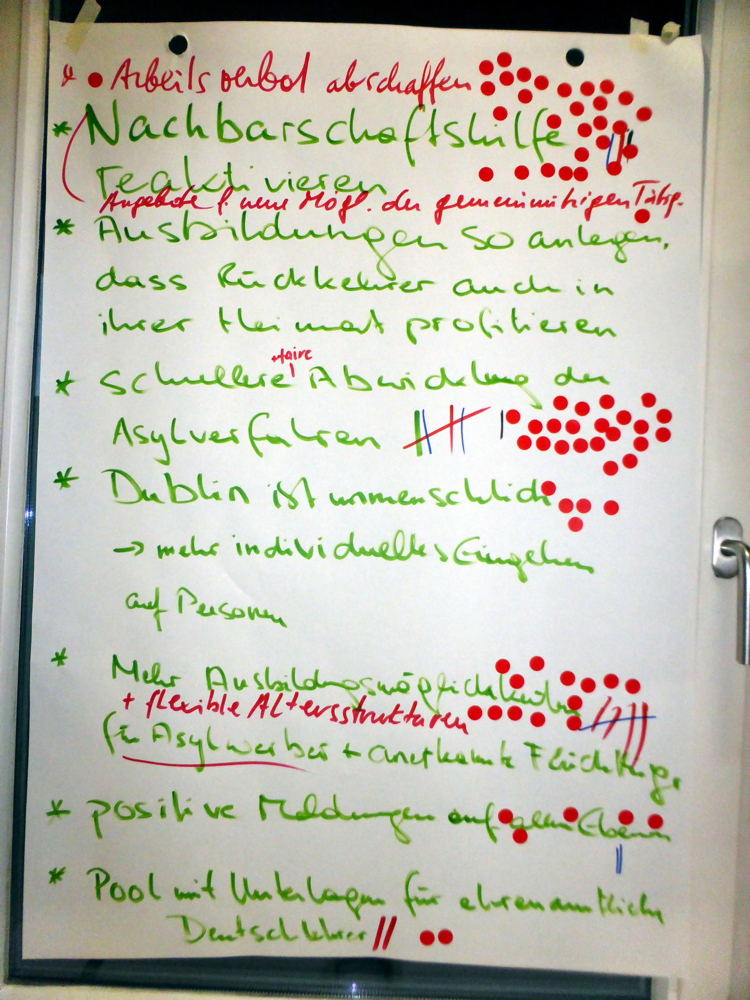 * • Arbeitsverbot abschaffen
* Nachbarschaftshilfe
reaktivieren
Angebote f. neue Mögl. der gemeinnützigen Tätig.
* Ausbildungen so anlegen,
dass Rückkehrer auch in
ihrer Heimat profitieren
+faire
* schnellere Abwicklung der
Asylverfahren
* Dublin ist unmenschlich
→ mehr individuelles Eingehen
auf Personen
* Mehr Ausbildungsmöglichkeiten
+ flexible Altersstrukturen
für Asylwerber + anerkannte Flüchtlinge
* positive Meldungen auf allen Ebenen
* Pool mit Unterlagen für ehrenamtliche
Deutschlehrer